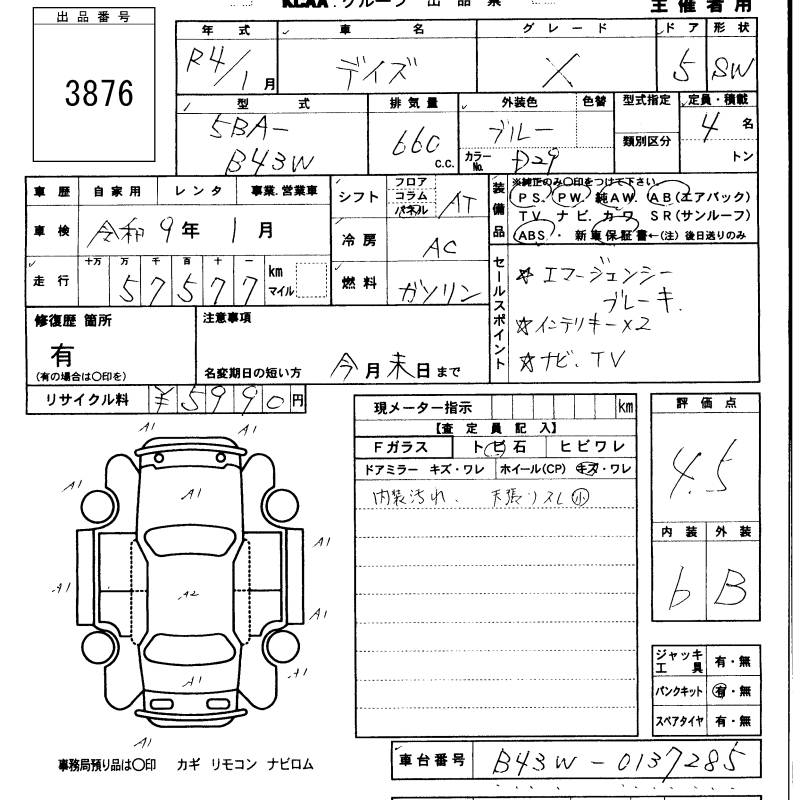 KCAA.グループ 出品票
主催者用
出品番号
3876
年式 車名 グレード ドア 形状
R4/1月 デイズ X 5 SW
型式 排気量 外装色 色替 型式指定 定員・積載
5BA-
B43W
660 c.c.
ブルー
カラーNo. D29
類別区分
4名
トン
車歴 自家用 レンタ 事業.営業車
車検 令和9年1月
走行 十万 万 千 百 十 一
57577 km マイル
シフト フロア コラム パネル AT
冷房 AC
燃料 ガソリン
装備品
※純正のみ〇印をつけて下さい。
PS. PW. 純AW. AB(エアバック)
TV ナビ. カワ SR(サンルーフ)
ABS. ・ 新車保証書←(注) 後日送りのみ
セールスポイント
☆エマージェンシー
ブレーキ.
☆インテリキーX2
☆ナビ、TV
修復歴 箇所
有
(有の場合は〇印を)
注意事項
名変期日の短い方 今月末日まで
リサイクル料 ¥5990円
現メーター指示 km
【査定員記入】
Fガラス トビ石 ヒビワレ
ドアミラー キズ・ワレ ホイール(CP) キズ・ワレ
内装汚れ. 天張リスレ小
評価点
4.5
内装 外装
b B
ジャッキ工具 有・無
パンクキット 有・無
スペアタイヤ 有・無
A1 A1
A1
A1
A1
A1
A1
A2
A1
A1
A1
A1
事務局預り品は〇印 カギ リモコン ナビロム
車台番号 B43W-0137285